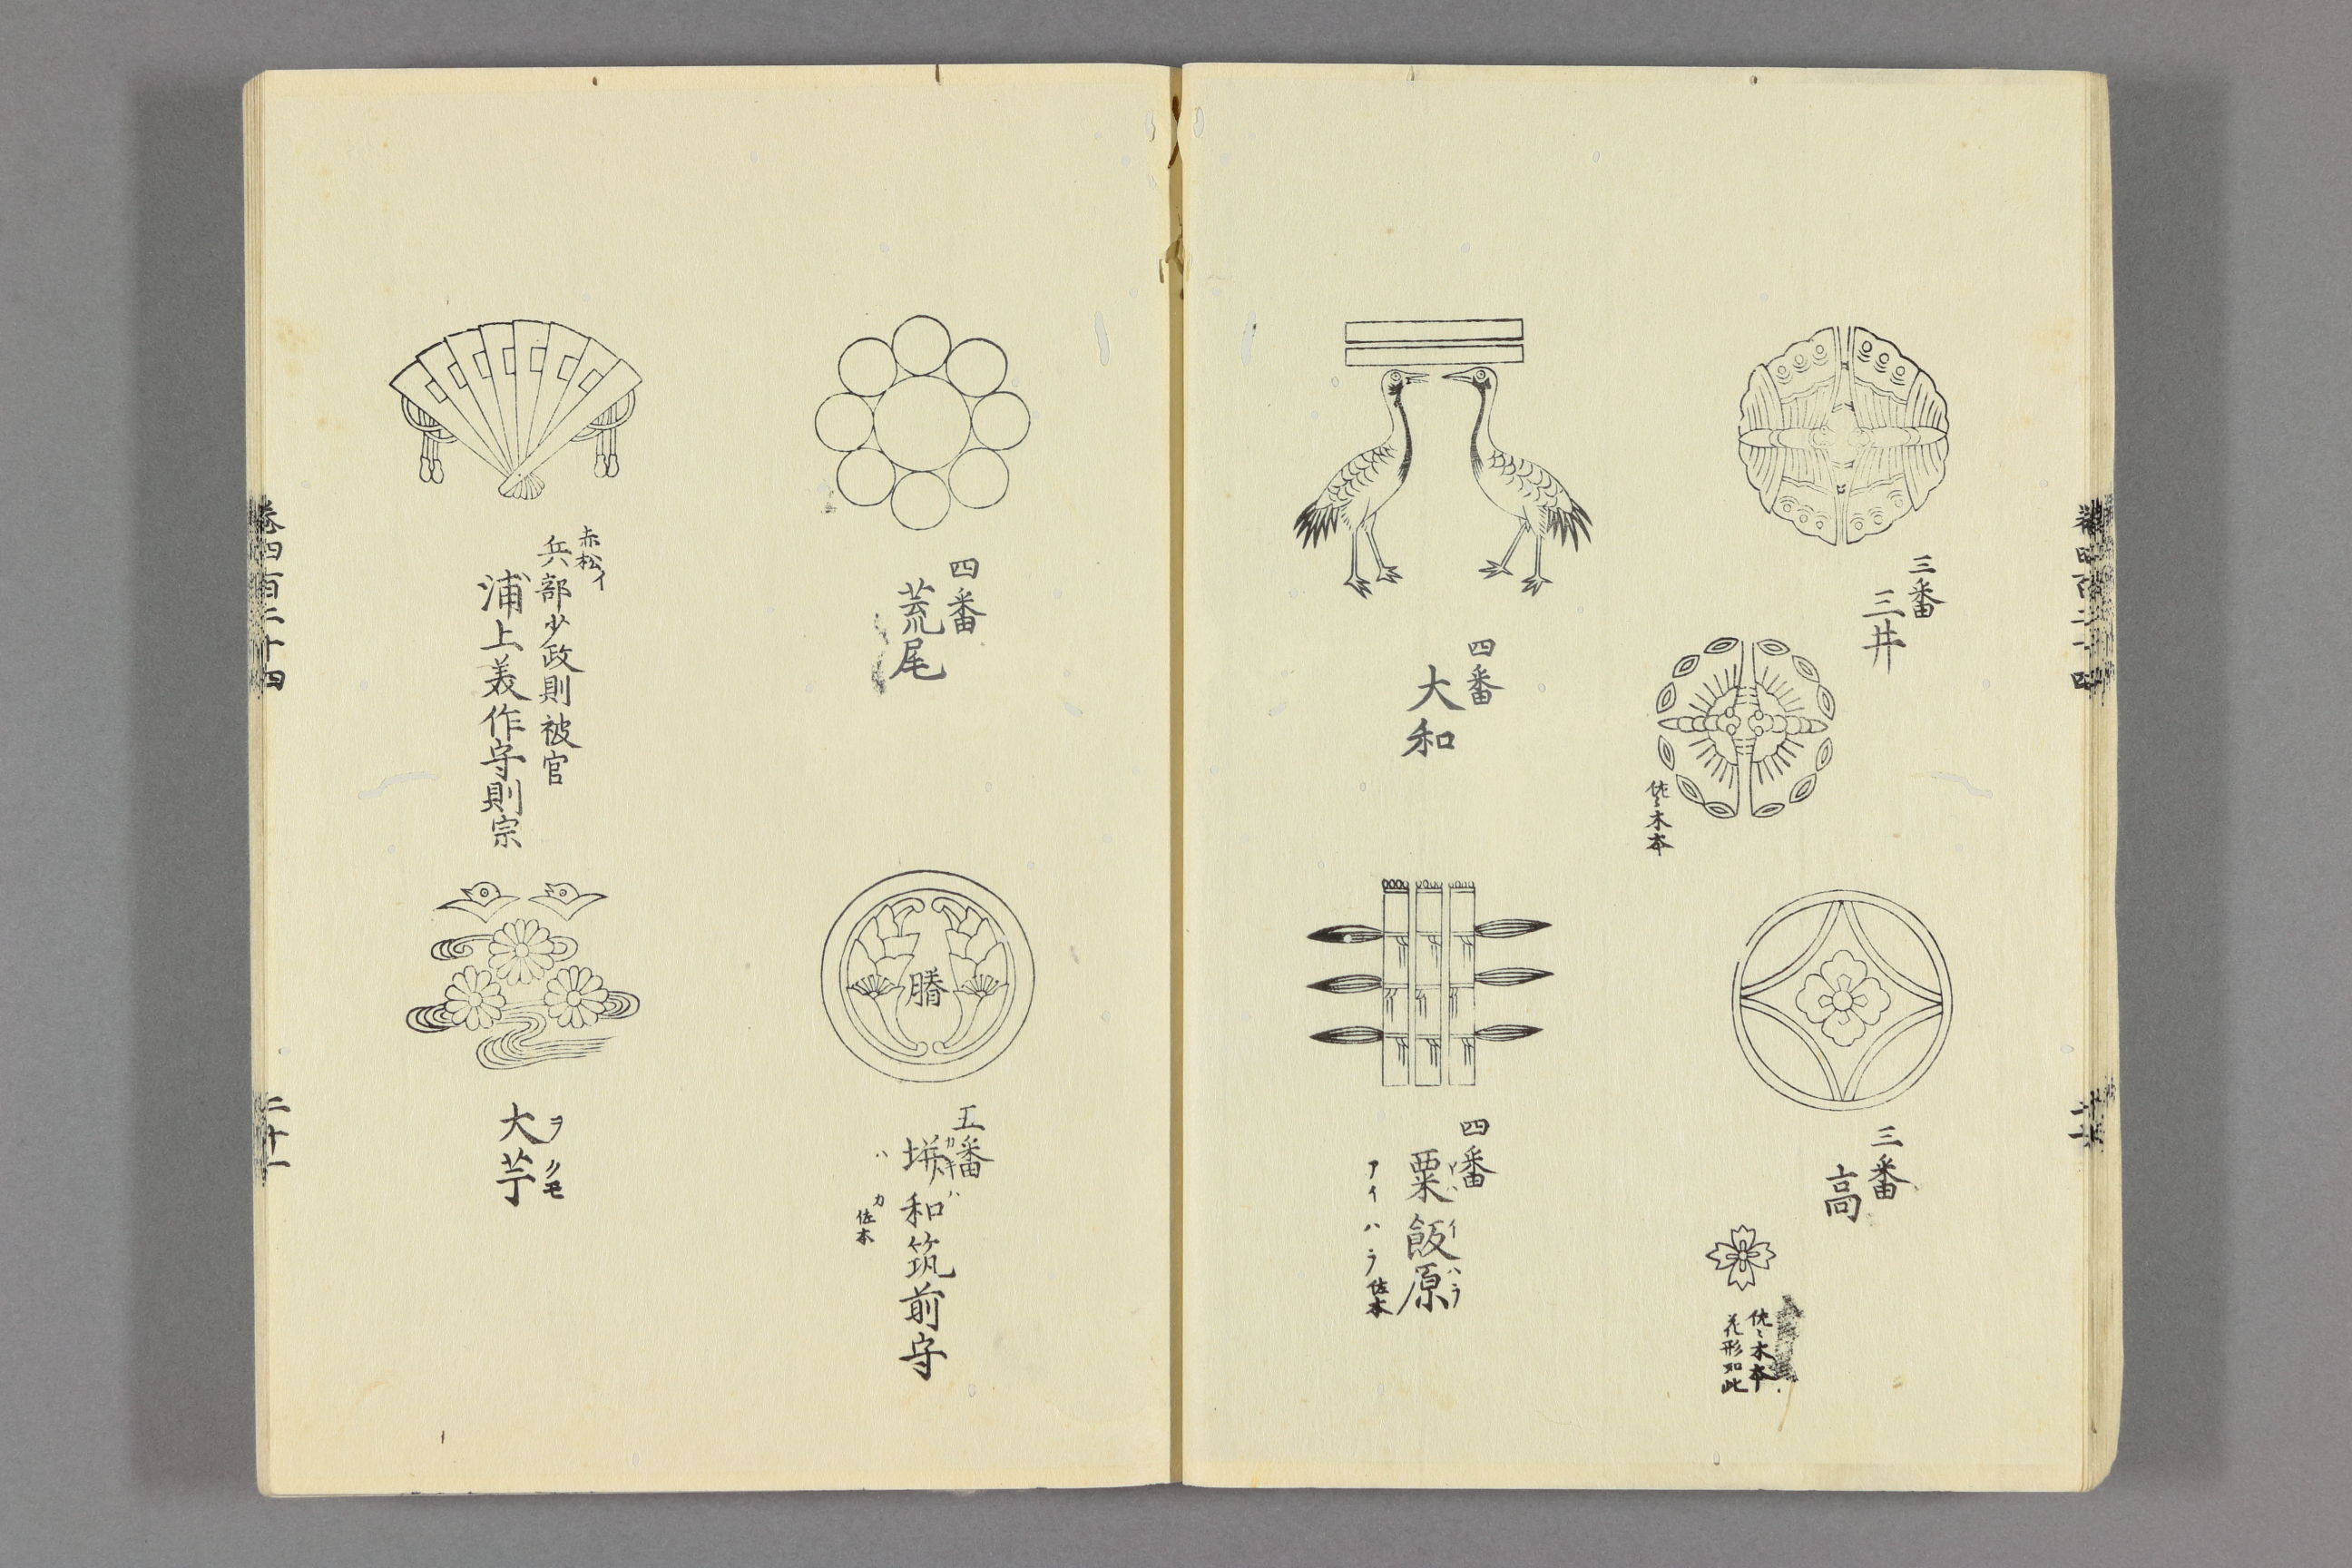 三番
三井
佐々木本
三番
高
佐々木本
花形如此
四番
大和
四番
粟飯原
イハラ
アイハラ佐本
四番
荒尾
五番
垪和筑前守
カキハ
ハカ佐本
勝
赤松イ
兵部少政則被官
浦上美作守則宗
大芋
ヲクモ
巻四百二十四
二十一